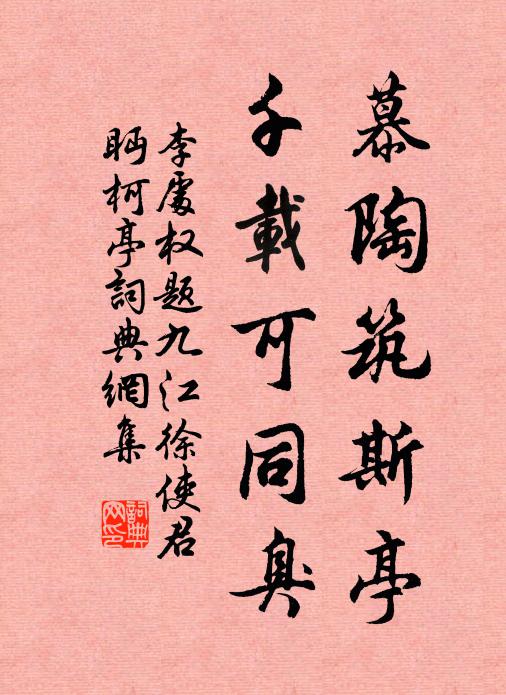 慕陶筑斯亭
千載可同臭
李處权题九江徐使君
眄柯亭詞典網集
詞典
网印